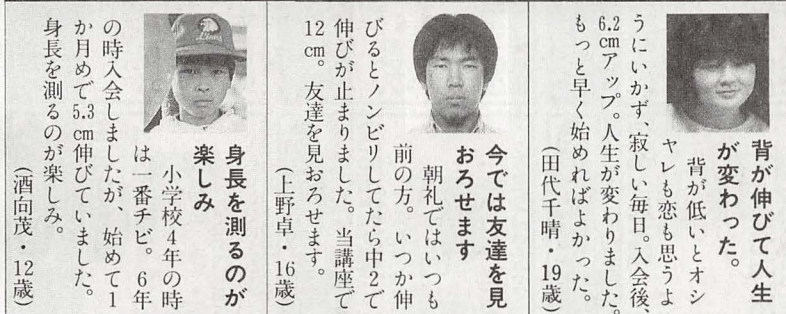 背が伸びて人生
が変わった。
背が低いとオシ
ャレも恋も思うよ
うにいかず、寂しい毎日。入会後、
6.2cmアップ。人生が変わりました。
もっと早く始めればよかった。
(田代千晴・19歳)
今では友達を見
おろせます
朝礼ではいつも
前の方。いつか伸
びるとノンビリしてたら中2で
伸びが止まりました。当講座で
12cm。友達を見おろせます。
(上野卓・16歳)
身長を測るのが
楽しみ
小学校4年の時
は一番チビ。6年
の時入会しましたが、始めて1
か月めで5.3cm伸びていました。
身長を測るのが楽しみ。
(酒向茂・12歳)
Lions